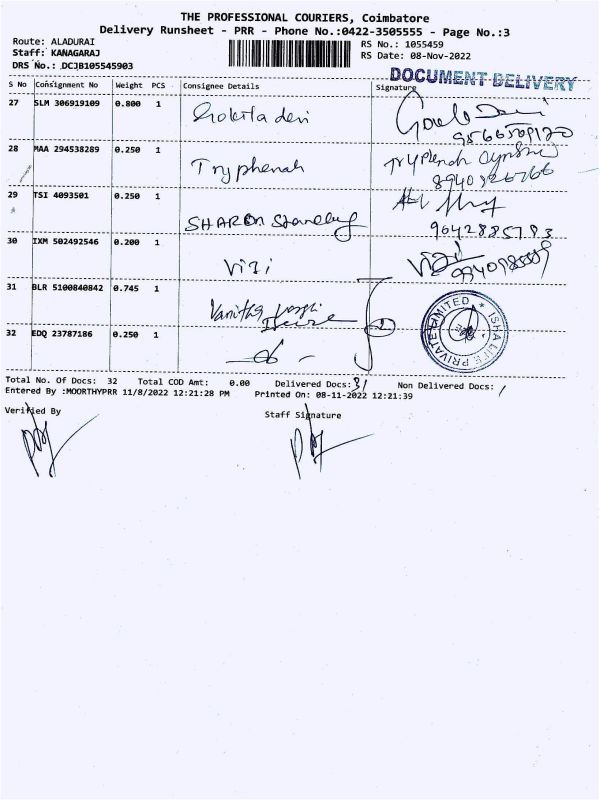 THE PROFESSIONAL COURIERS, Coimbatore
Delivery Runsheet - PRR - Phone No.:0422-3505555 - Page No.:3
Route: ALADURAI
Staff: KANAGARAJ
DRS No.: DCJB105545903
RS No.: 1055459
RS Date: 08-Nov-2022
DOCUMENT DELIVERY
S No Consignment No Weight PCS Consignee Details Signature
27 SLM 306919109 0.800 1 Gokila devi
9566509120
28 MAA 294538289 0.250 1 Tryphenah Tryphenah
29 TSI 4093501 0.250 1 SHARON Stanley
9042885783
30 IXM 502492546 0.200 1 Viji Viji
31 BLR 5100840842 0.745 1 Vanitha
32 EDQ 23787186 0.250 1 do -
ISHA LIFE PRIVATE LIMITED
Total No. Of Docs: 32 Total COD Amt: 0.00 Delivered Docs: 31 Non Delivered Docs: 1
Entered By :MOORTHYPRR 11/8/2022 12:21:28 PM Printed On: 08-11-2022 12:21:39
Verified By Staff Signature